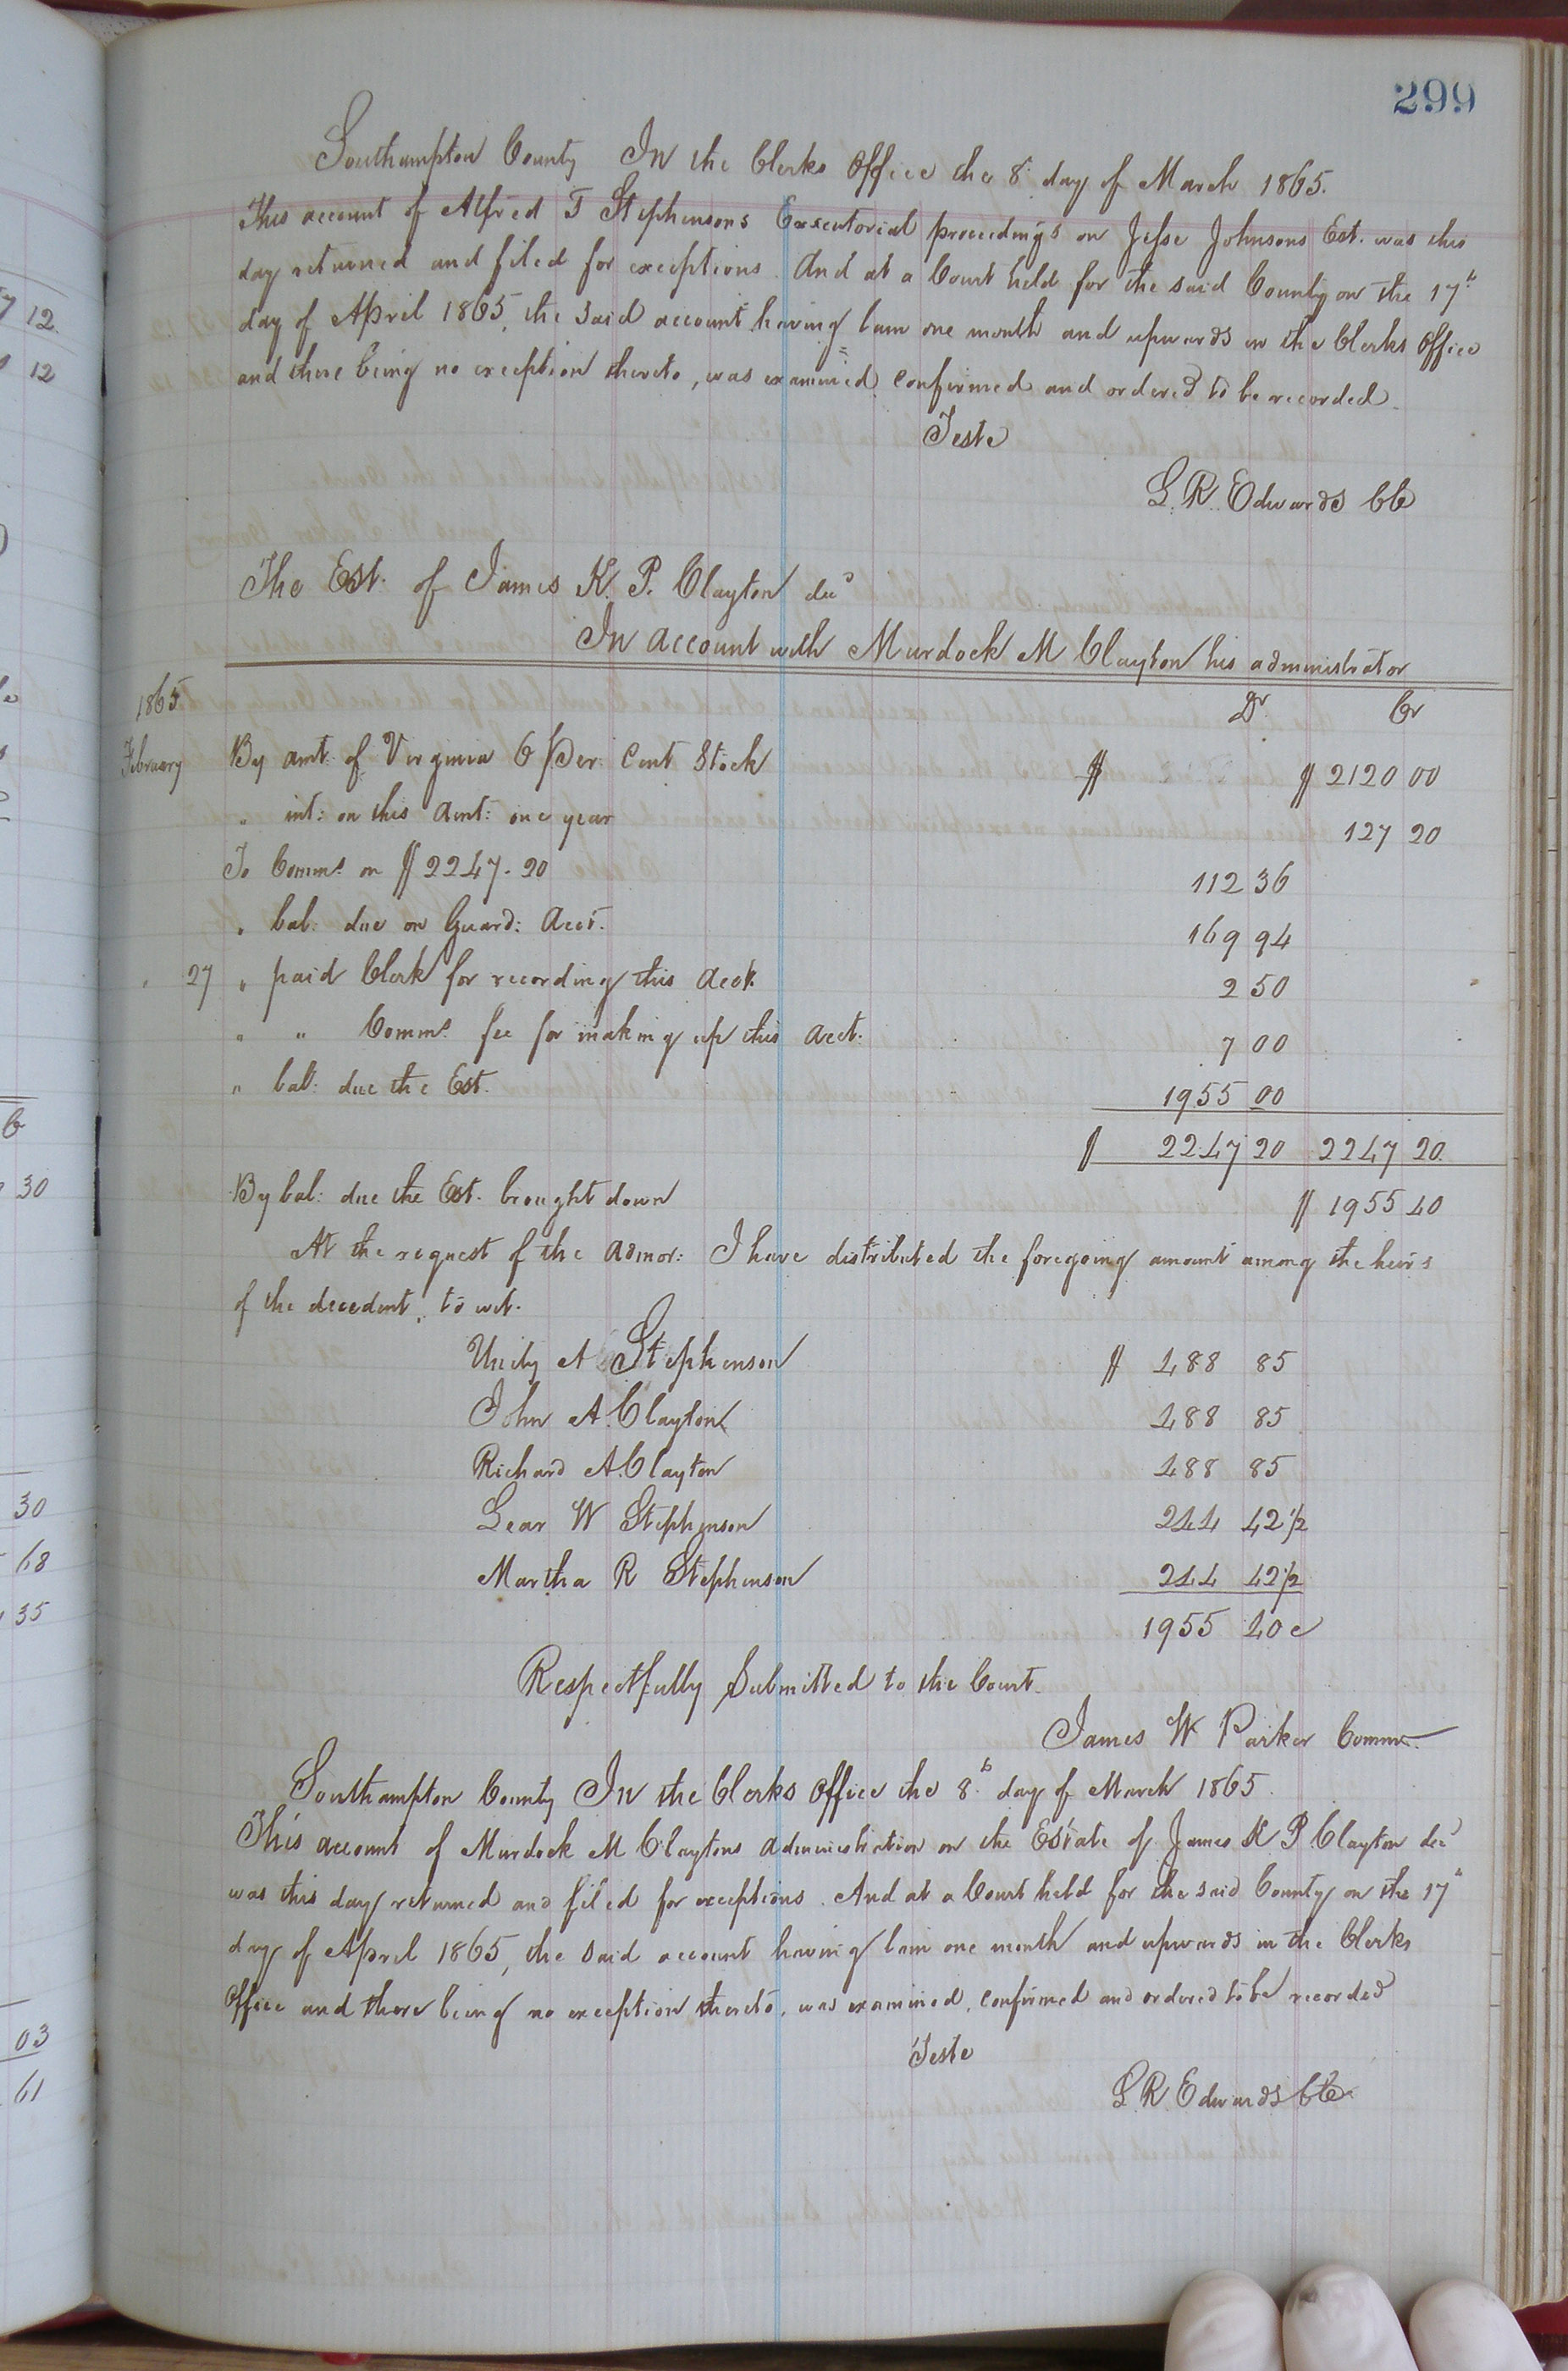 299
Southampton County In the Clerks Office the 8 day of March 1865.
This account of Alfred T Stephensons Executorial proceedings on Jesse Johnsons Est. was this
day returned and filed for exceptions. And at a Court held for the said County on the 17"
day of April 1865, the said account having lain one month and upwards in the Clerks Office
and there being no exception thereto, was examined, confirmed and ordered to be recorded
Teste
L. R. Edwards Clk
The Est. of James K. P. Clayton decd
In account with Murdock M Clayton his administrator
1865 Dr Cr
February By amt: of Virginia 6 per Cent Stock $ $ 2120 00
" int: on this Amt: one year 127 20
To Comms on $2247.20 112 36
" bal: due on Guard: Acct. 169 94
" 27 " paid Clerk for recording this Acct. 2 50
" " Comms fee for making up this Acct. 7 00
" bal: due the Est. 1955 00
$ 2247 20 2247 20
By bal: due the Est. brought down $ 1955 40
At the request of the Admor: I have distributed the foregoing amount among the heirs
of the decedent, to wit.
Unity A Stephenson $ 488 85
John A. Clayton 488 85
Richard A. Clayton 488 85
Lear W Stephenson 244 42 1/2
Martha R Stephenson 244 42 1/2
1955 40 c
Respectfully Submitted to the Court.
James W Parker Commr.
Southampton County In the Clerks Office the 8th day of March 1865.
This account of Murdock M Claytons administration on the Estate of James K P Clayton decd
was this day returned and filed for exceptions. And at a Court held for the said County on the 17"
day of April 1865, the said account having lain one month and upwards in the Clerks
Office and there being no exception thereto, was examined, confirmed and ordered to be recorded
Teste
L. R. Edwards Clk
12
12
30
30
68
35
03
61